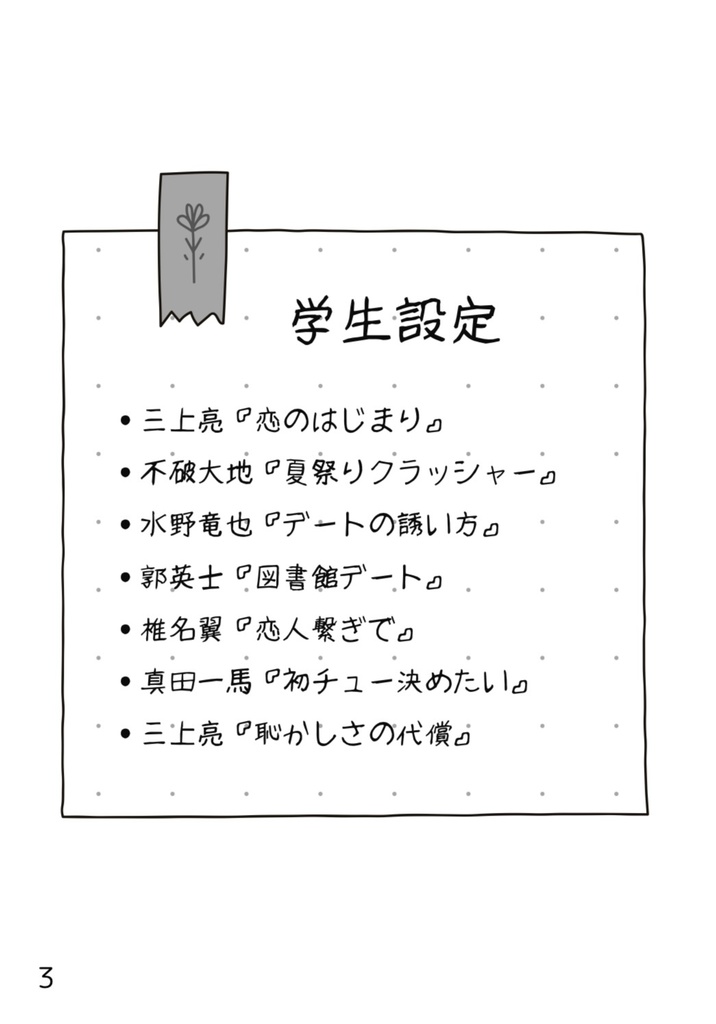 学生設定
• 三上亮『恋のはじまり』
• 不破大地『夏祭りクラッシャー』
• 水野竜也『デートの誘い方』
• 郭英士『図書館デート』
• 椎名翼『恋人繋ぎで』
• 真田一馬『初チュー決めたい』
• 三上亮『恥かしさの代償』
3